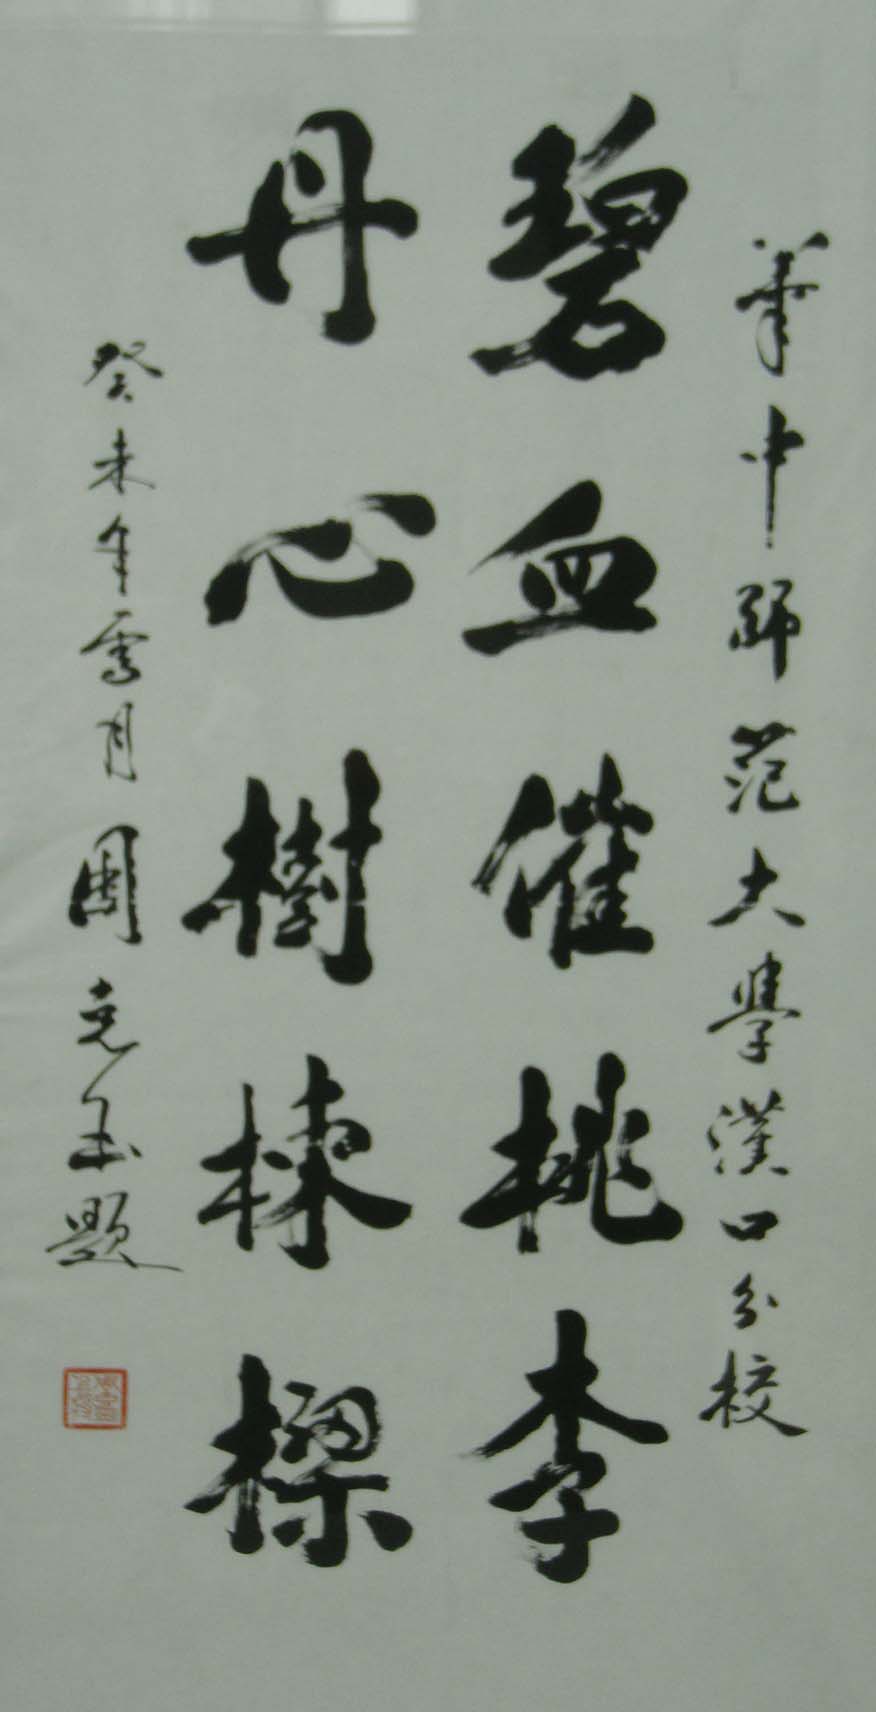 華中師范大學漢口分校
碧血催桃李
丹心樹棟樑
癸未年雪月周克玉題